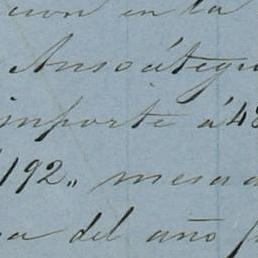 cion en la
Ansoátegui
importe á 48
192,, mesa
a del año